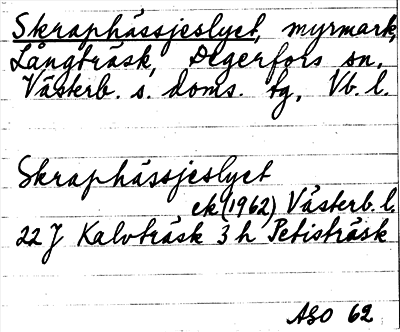 Skraphässjeslyet, myrmark,
Långträsk, Degerfors sn.
Västerb. s. doms. tg, Vb. l.
Skraphässjeslyet
ek (1962) Västerb. l.
22 J Kalvträsk 3 h Petisträsk
ASO 62